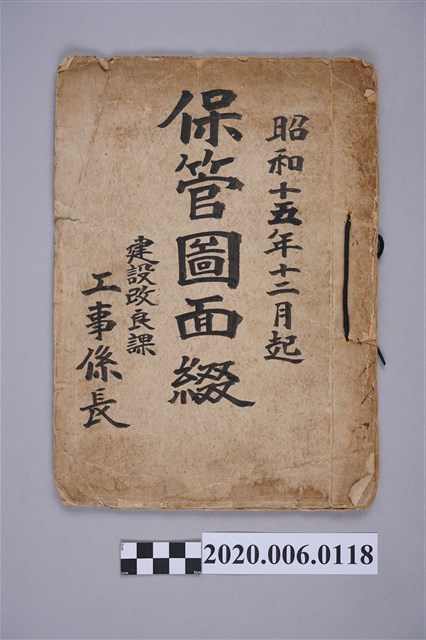 昭和十五年十二月起
保管圖面綴
建設改良課
工事係長
2020.006.0118